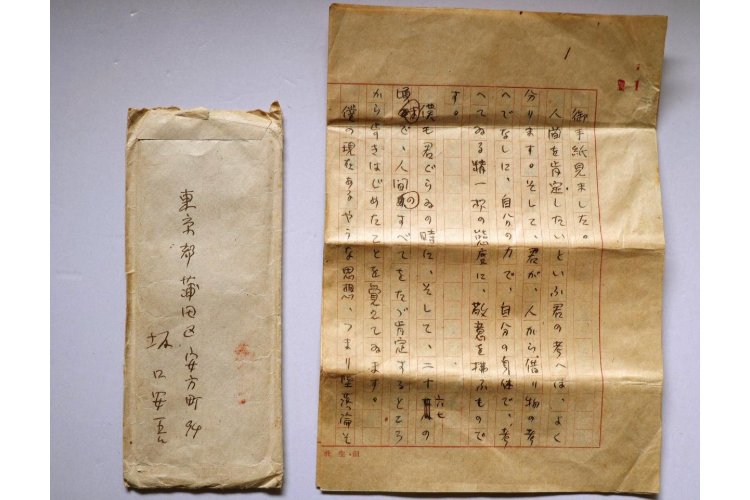 1
御手紙見ました。
人間を肯定したいといふ君の考へは、よく
分ります。そして、君が、人から借り物の考
へでなしに、自分の力で、自分の身体で、考
へてゐる精一杯の態度に、敬意を拂ふもので
す。
僕も君ぐらゐの時に、そして、二十六七の
頃まで、人間のすべてをたゞ肯定するところ
から歩きはじめたことを覚えてゐます。
僕の現在あるやうな思想、つまり堕落論そ
東京都蒲田区安方町94
坂口安吾